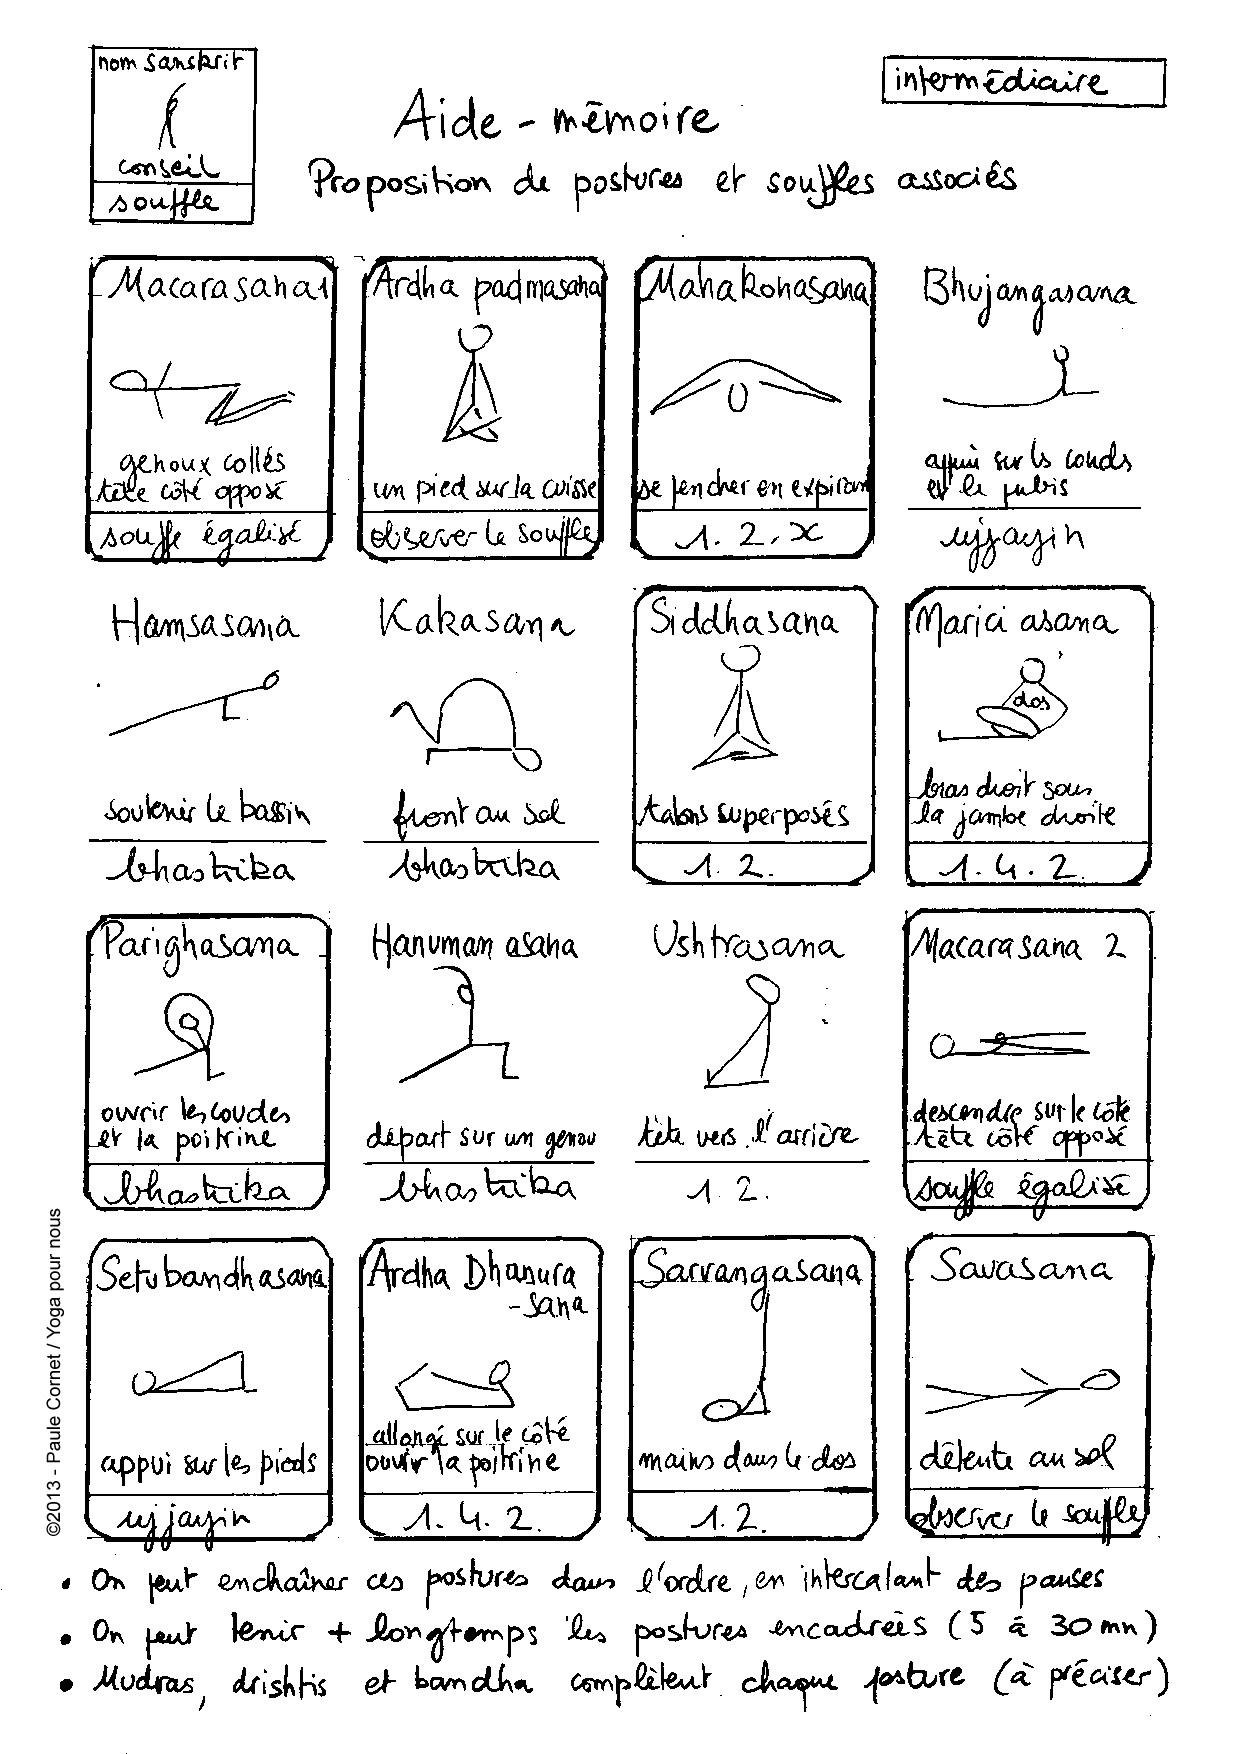 nom sanskrit
conseil
souffle
intermédiaire
Aide-mémoire
Proposition de postures et souffles associés
Macarasana 1
genoux collés
tête côté opposé
souffle égalisé
Ardha padmasana
un pied sur la cuisse
observer le souffle
Mahakonasana
se pencher en expirant
1. 2. x
Bhujangasana
appui sur ls couds
et le pubis
ujjayin
Hamsasana
soutenir le bassin
bhastrika
Kakasana
front au sol
bhastrika
Siddhasana
talons superposés
1. 2.
Marici asana
dos
bras droit sous
la jambe droite
1. 4. 2.
Parighasana
ouvrir les coudes
et la poitrine
bhastrika
Hanuman asana
départ sur un genou
bhastrika
Ushtrasana
tête vers l'arrière
1 2.
Macarasana 2
descendre sur le côté
tête côté opposé
souffle égalisé
Setubandhasana
appui sur les pieds
ujjayin
Ardha Dhanura
-sana
allongé sur le côté
ouvrir la poitrine
1. 4. 2.
Sarvangasana
mains dans le dos
1. 2.
Savasana
détente au sol
observer le souffle
©2013 - Paule Cornet / Yoga pour nous
• On peut enchaîner ces postures dans l'ordre, en intercalant des pauses
• On peut tenir + longtemps les postures encadrées (5 à 30 mn)
• Mudras, drishtis et bandha complètent chaque posture (à préciser)